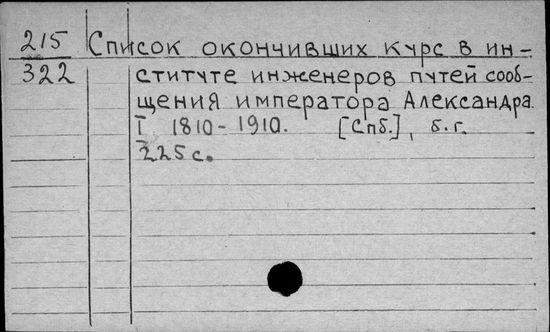 215 Список окончивших курс в ин-
322 ституте инженеров путей сооб-
щения императора Александра
I 1810-1910. [Спб.], б.г.
225 с.